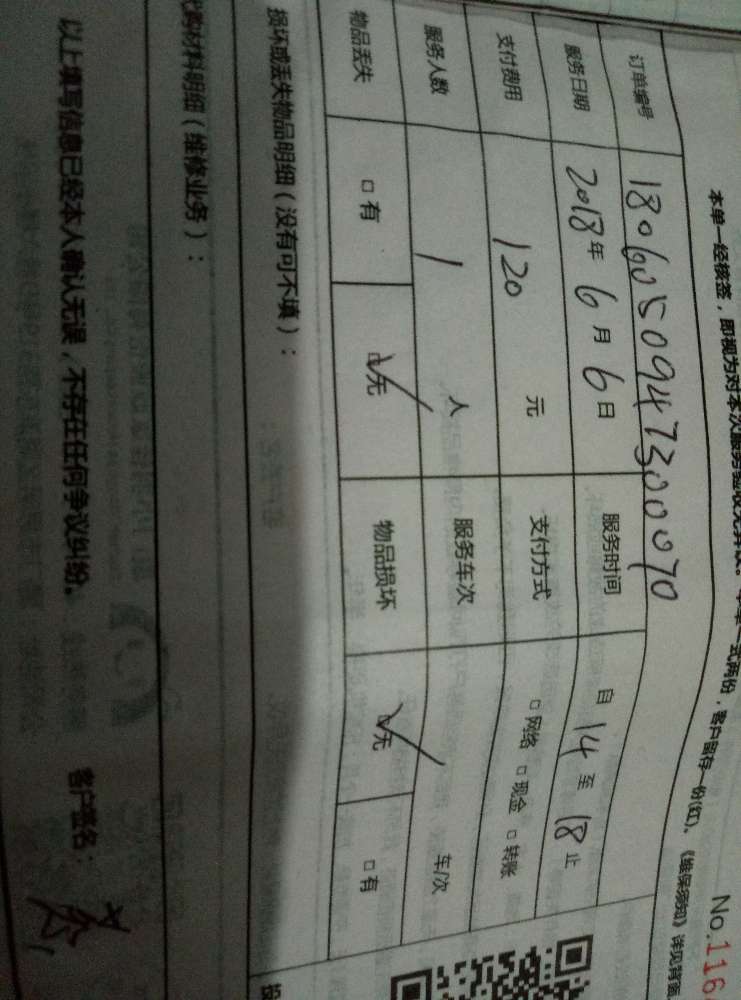 No.116
本单一经核签，即视为对本次服务验收无异议。本单一式两份，客户留存一份(红)。《维保须知》详见背面
订单编号 180605094730070
服务日期 2018年 6月 6日 服务时间 自 14 至 18 止
支付费用 120 元 支付方式 □网络 □现金 □转账
服务人数 1 人 服务车次 车/次
物品丢失 □有 ☑无 物品损坏 ☑无 □有
损坏或丢失物品明细（没有可不填）：
购材料明细（维修业务）：
以上填写信息已经本人确认无误，不存在任何争议纠纷。 客户签名：